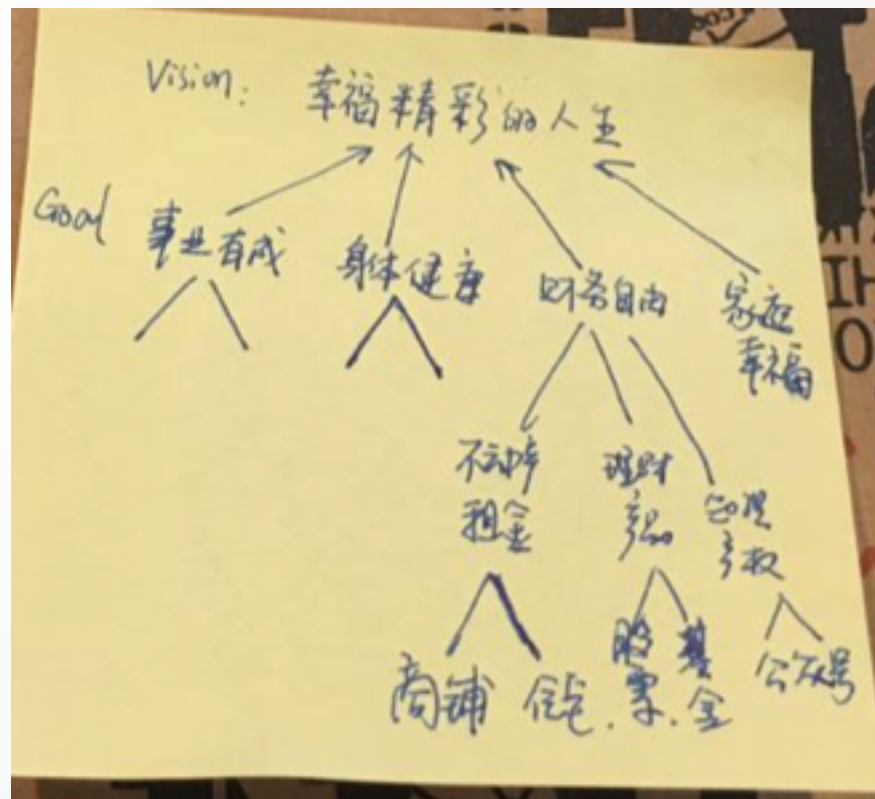 Vision: 幸福精彩的人生
Goal 事业有成 身体健康 财务自由 家庭
幸福
不动产 理财 知识
租金 产品 产权
商铺 住宅、股票、基金 公众号